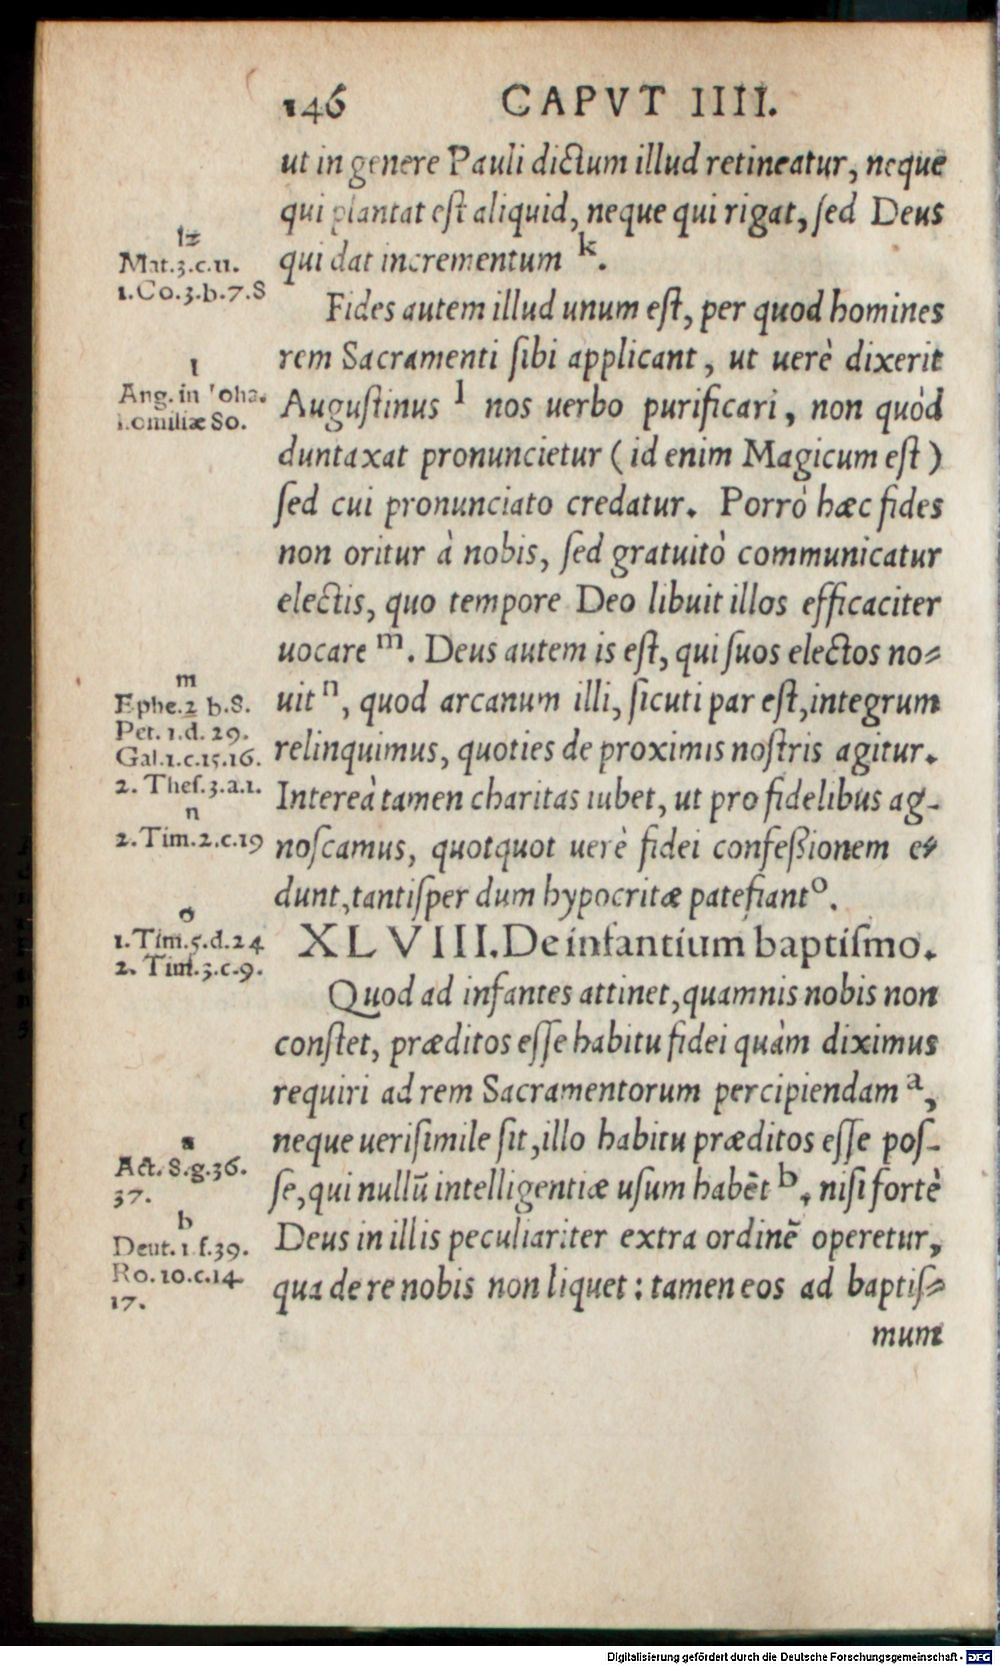 146 CAPVT IIII.
ut in genere Pauli dictum illud retineatur, neque
qui plantat est aliquid, neque qui rigat, sed Deus
qui dat incrementum k.
Fides autem illud unum est, per quod homines
rem Sacramenti sibi applicant, ut uerè dixerit
Augustinus l nos uerbo purificari, non quòd
duntaxat pronuncietur (id enim Magicum est)
sed cui pronunciato credatur. Porrò hæc fides
non oritur à nobis, sed gratuitò communicatur
electis, quo tempore Deo libuit illos efficaciter
uocare m. Deus autem is est, qui suos electos no=
uit n, quod arcanum illi, sicuti par est, integrum
relinquimus, quoties de proximis nostris agitur.
Intereà tamen charitas iubet, ut pro fidelibus ag-
noscamus, quotquot uerè fidei confeßionem e=
dunt, tantisper dum hypocritæ patefiant o.
XLVIII. De infantium baptismo.
Quod ad infantes attinet, quamnis nobis non
constet, præditos esse habitu fidei quàm diximus
requiri ad rem Sacramentorum percipiendam a,
neque uerisimile sit, illo habitu præditos esse pos-
se, qui nullũ intelligentiæ usum habẽt b, nisi fortè
Deus in illis peculiariter extra ordinẽ operetur,
qua de re nobis non liquet: tamen eos ad baptis=
mum
k
Mat.3.c.11.
1.Co.3.b.7.8
l
Aug. in Joha.
homiliæ 80.
m
Ephe.2 b.8.
Pet. 1.d. 29.
Gal.1.c.15.16.
2. Thes.3.a.1.
n
2.Tim.2.c.19
o
1.Tim.5.d.24
2. Tim.3.c.9.
a
Act. 8.g.36.
37.
b
Deut. 1 f.39.
Ro. 10.c.14
17.
Digitalisierung gefördert durch die Deutsche Forschungsgemeinschaft - DFG